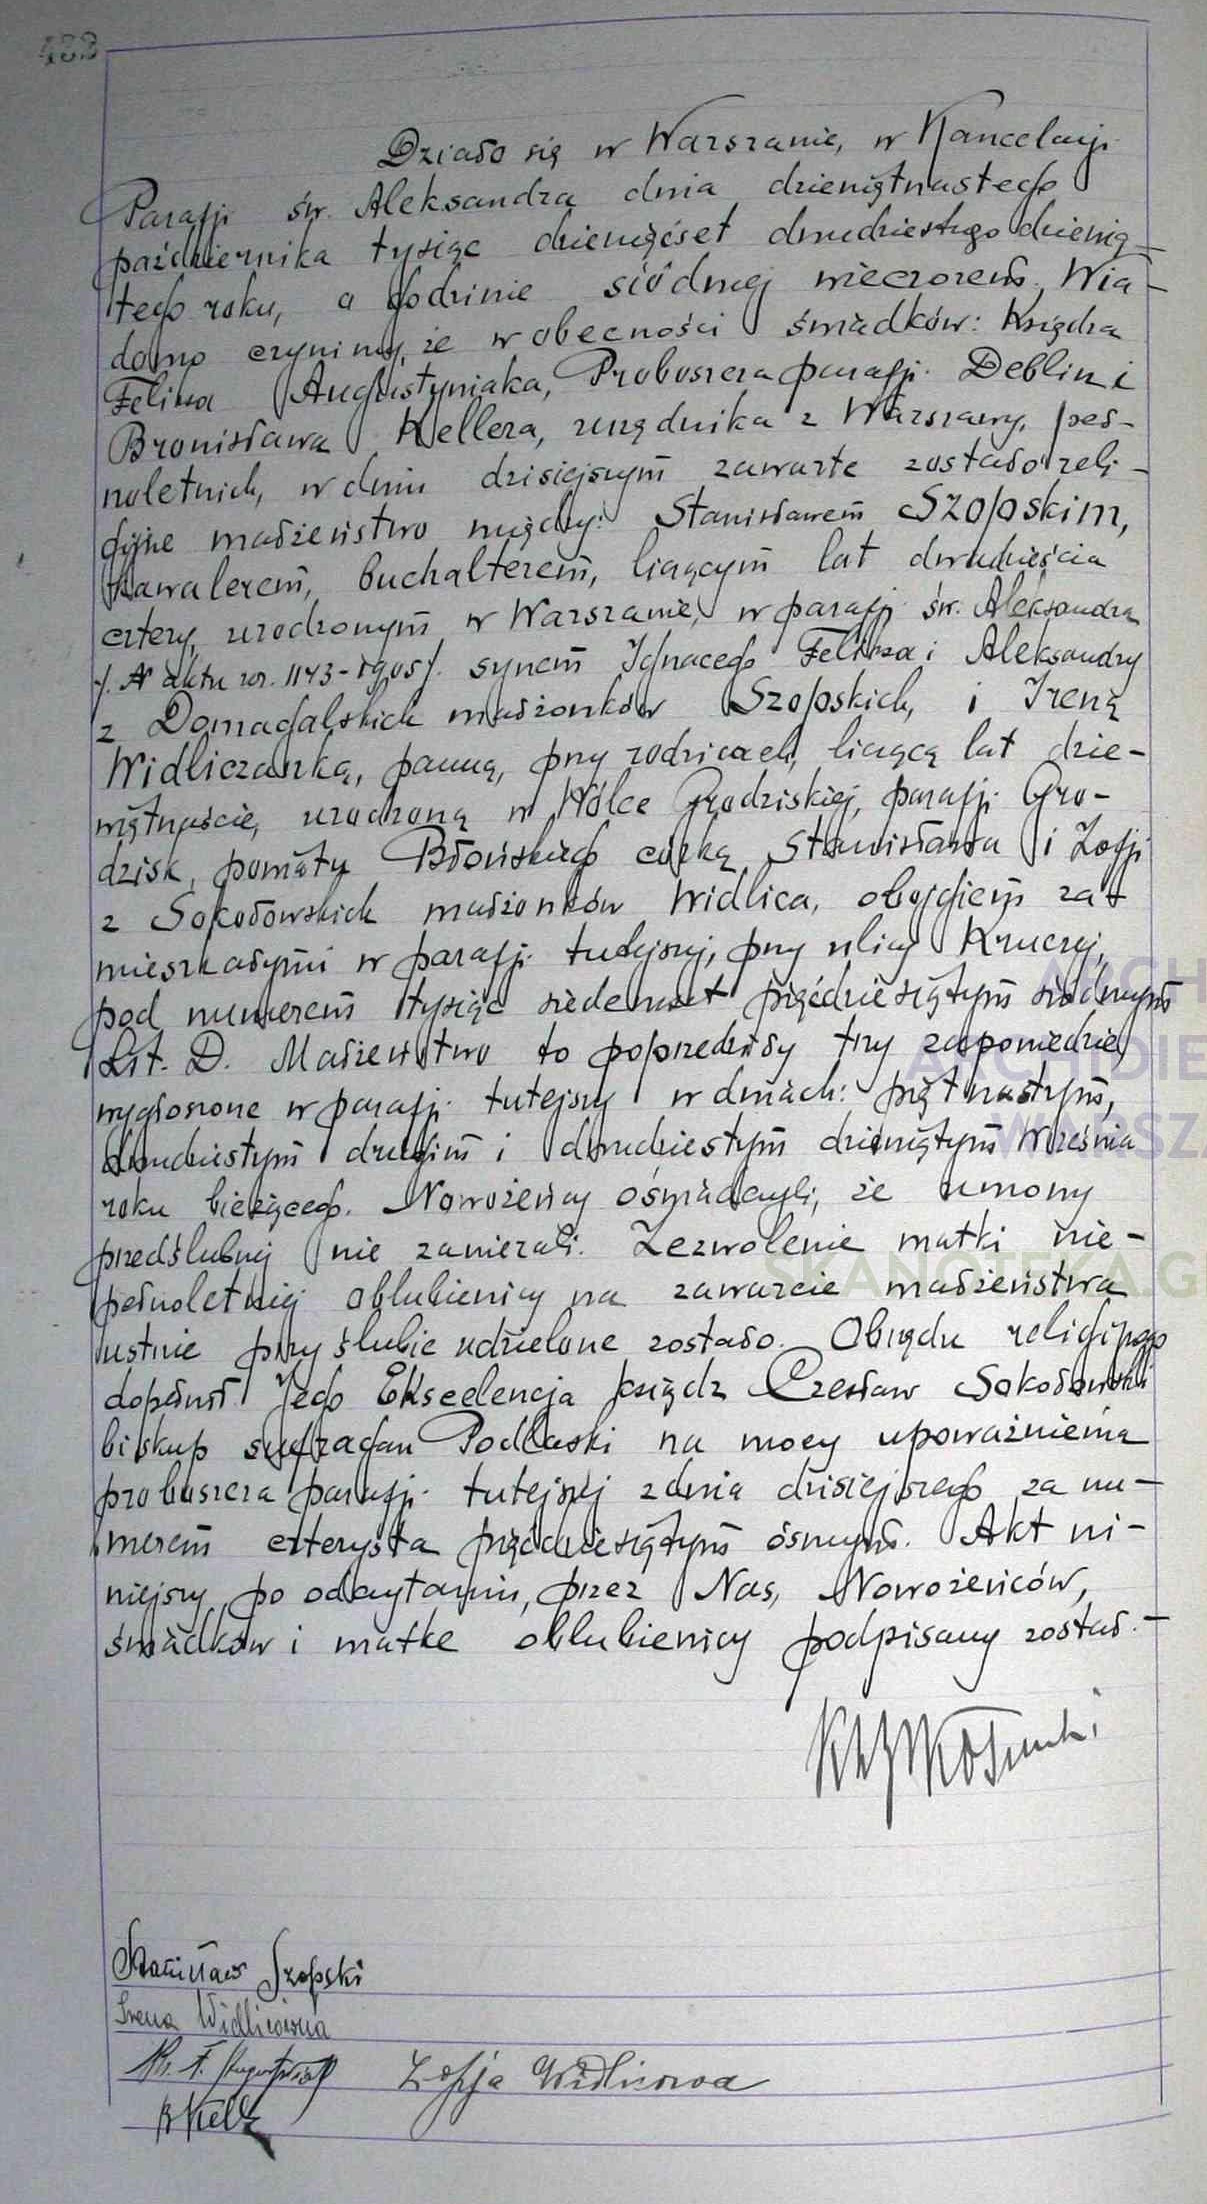 483
Działo się w Warszawie, w Kancelarji
Parafji św. Aleksandra dnia dziewiętnastego
października tysiąc dziewięćset dwudziestego dziewią-
tego roku, o godzinie siódmej wieczorem. Wia-
domo czynimy, że w obecności świadków: Księdza
Felixa Augustyniaka, Proboszcza parafji Deblin i
Bronisława Kellera, urzędnika z Warszawy, peł-
noletnich, w dniu dzisiejszym zawarte zostało reli-
gijne małżeństwo między: Stanisławem Szopskim,
kawalerem, buchalterem, liczącym lat dwadzieścia
cztery, urodzonym w Warszawie, w parafji św. Aleksandra
/. N aktu ur. 1143-1905/. synem Ignacego Felixa i Aleksandry
z Domagalskich małżonków Szopskich, i Ireną
Widliczanką, panną, przy rodzicach, liczącą lat dzie-
więtnaście, urodzoną w Wólce Grodziskiej, parafji Gro-
dzisk, powiatu Błońskiego córką Stanisława i Zofji
z Sokołowskich małżonków Widlica, obojgiem za-
mieszkałymi w parafji tutejszej, przy ulicy Kruczej,
pod numerem tysiąc siedemset pięćdziesiątym siódmym
Lit. D. Małżeństwo to poprzedziły trzy zapowiedzie
wygłoszone w parafji tutejszej w dniach: piętnastym,
dwudziestym drugim i dwudziestym dziewiątym Września
roku bieżącego. Nowożeńcy oświadczyli, że umowy
przedślubnej nie zawierali. Zezwolenie matki nie-
pełnoletniej oblubienicy na zawarcie małżeństwa
ustnie przy ślubie udzielone zostało. Obrzędu religijnego
dopełnił Jego Ekscelencja ksiądz Czesław Sokołowski
biskup sufragan Podlaski na mocy upoważnienia
proboszcza parafji tutejszej z dnia dzisiejszego za nu-
merem czterysta pięćdziesiątym ósmym. Akt ni-
niejszy po odczytaniu, przez Nas, Nowożeńców,
świadków i matkę oblubienicy podpisany został.-
Stanisław Szopski
Irena Widlicówna
Ks. F. Augustyniak Zofja Widlicowa
B Keller
SKANOTEKA.G